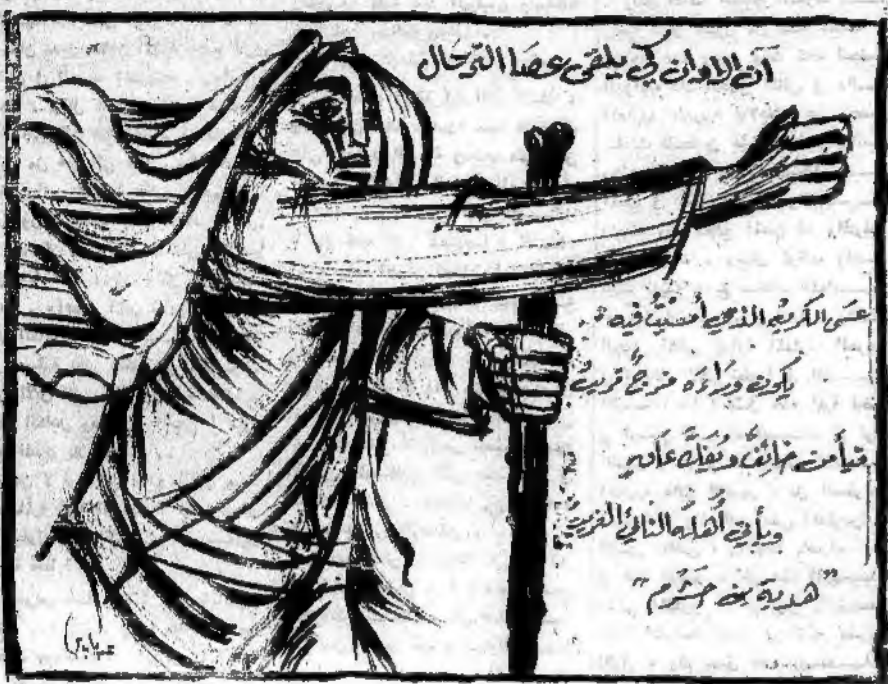 آن الأوان كي يلقى عصا الترحال
عسَى الكربُ الذي أمسَيْتُ فيه
يكون وراءَه فرجٌ قريبُ
فيأمن خائفٌ ويُفَكَّ عانٍ
ويأتي أهلَه النائي الغريبُ
"هدبة بن خشرم"